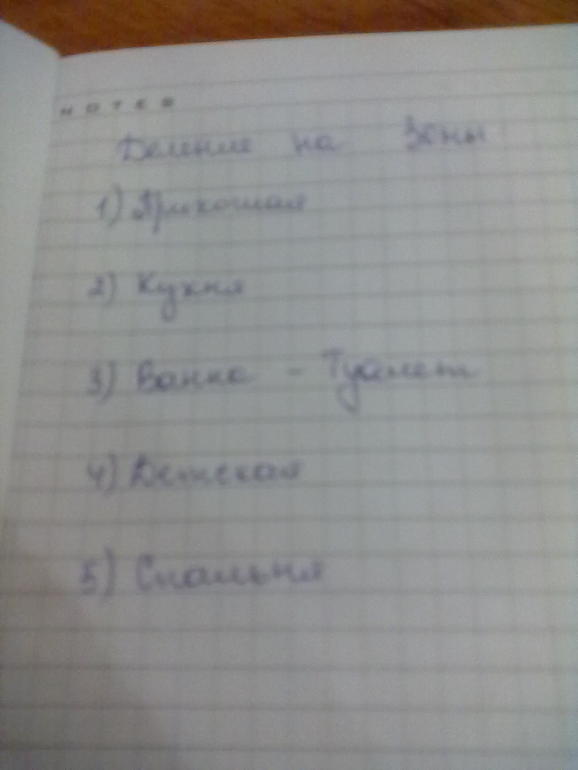 NOTES
Деление на Зоны
1) Прихожая
2) Кухня
3) Ванна - Туалет
4) Детская
5) Спальня